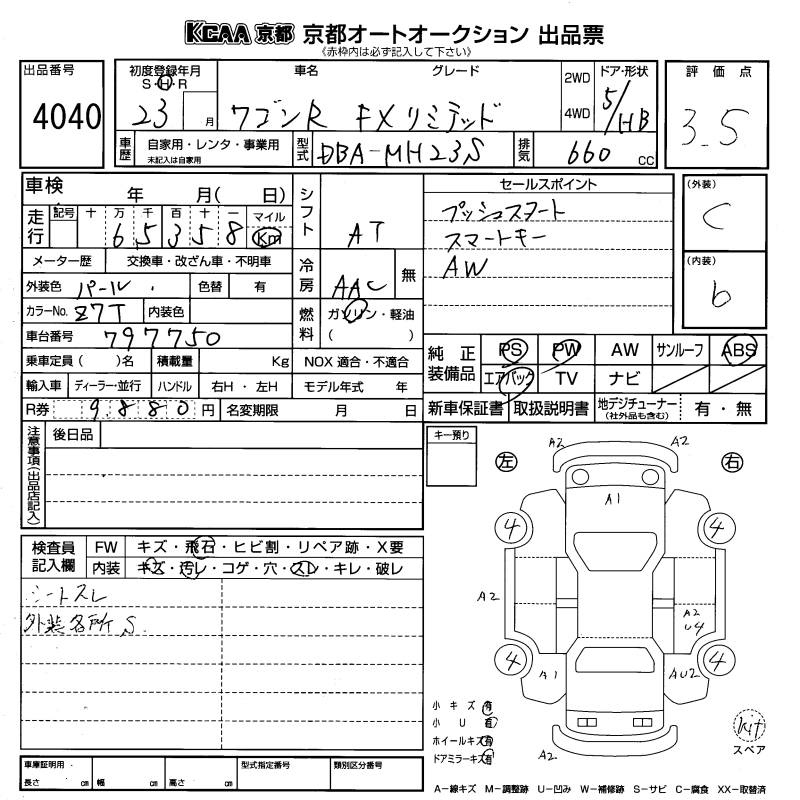 KCAA 京都 京都オートオークション 出品票
《赤枠内は必ず記入して下さい》
出品番号
4040
初度登録年月
S・H・R
23 月
車名
グレード
ワゴンR FXリミテッド
2WD
4WD
ドア・形状
5/HB
評価点
3.5
車歴
自家用・レンタ・事業用
未記入は自家用
型式
DBA-MH23S
排気
660 CC
車検 年 月( 日)
走行
記号 十 万 千 百 十 一 マイル
65358 Km
メーター歴 交換車・改ざん車・不明車
外装色 パール 色替 有
カラーNo. Z7T 内装色
車台番号 797750
乗車定員( )名 積載量 Kg
輸入車 ディーラー・並行 ハンドル 右H・左H
R券 9880 円 名変期限 月 日
シフト
AT
冷房
AAC 無
燃料
ガソリン・軽油
( )
NOX 適合・不適合
モデル年式 年
セールスポイント
プッシュスタート
スマートキー
AW
(外装)
C
(内装)
b
純正装備品
PS PW AW サンルーフ ABS
エアバック TV ナビ
新車保証書 取扱説明書 地デジチューナー(社外品も含む) 有・無
注意事項(出品店記入)
後日品
キー預り
検査員記入欄
FW キズ・飛石・ヒビ割・リペア跡・X要
内装 キズ・汚レ・コゲ・穴・スレ・キレ・破レ
シートスレ
外装各所S
左 右
A2 A2
A1
4 4
A2
A2
U4
4 4
A1 AU2
A2
小キズ 有
小U 有
ホイールキズ 有
ドアミラーキズ 有
Kit
スペア
車庫証明用
長さ cm 幅 cm 高さ cm
型式指定番号
類別区分番号
A−線キズ M−調整跡 U−凹み W−補修跡 S−サビ C−腐食 XX−取替済